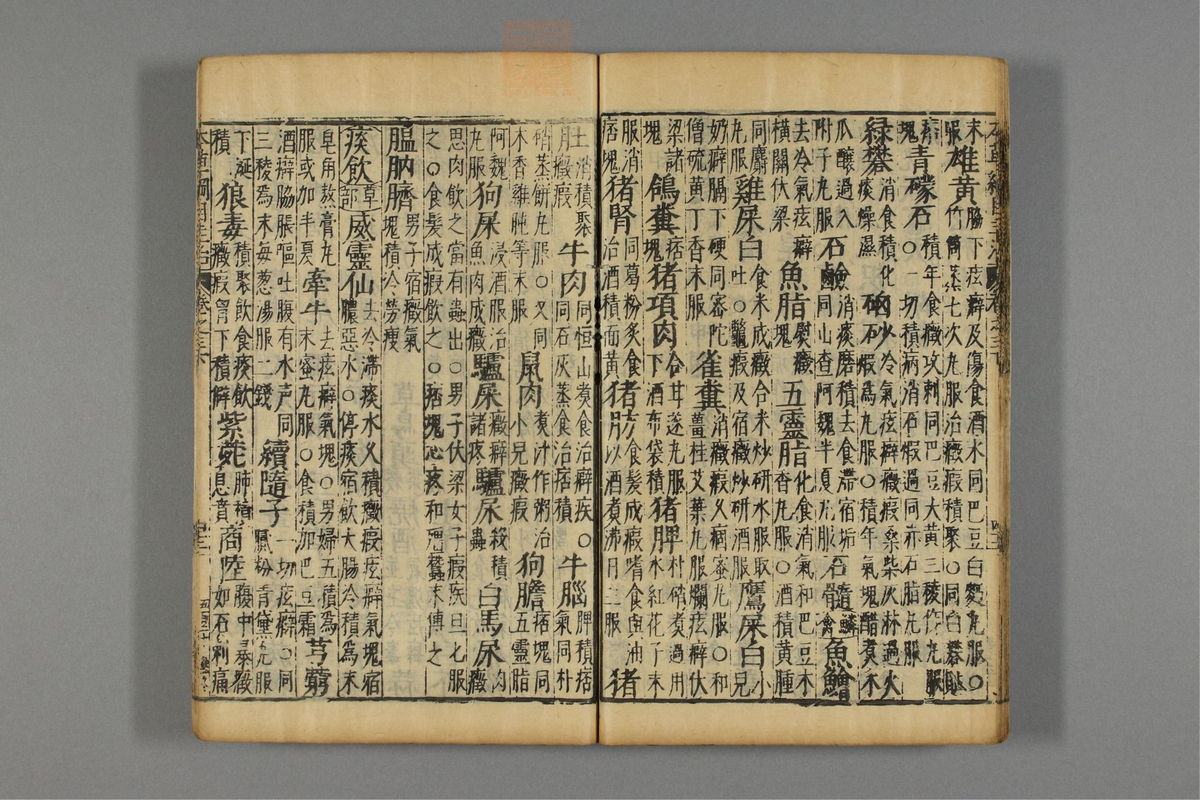 末服雄黃脇下痃癖及傷食酒水同巴豆白麪丸服○竹筒蒸七次丸服治癥瘕積聚○同白礬貼
痞塊青礞石積年食癥攻刺同巴豆大黃三稜作丸服○一切積病消石煅過同赤石脂丸服
綠礬消食積化痰燥濕硇砂冷氣痃癖癥瘕桑柴灰淋過火煅爲丸服○積年氣塊醋煮木
瓜釀過入附子丸服石鹼消痰磨積去食滯宿垢同山查阿魏半夏丸服石髓鱗禽魚鱠
去冷氣痃癖橫關伏梁魚脂熨癥塊五靈脂化食消氣和巴豆木香丸服○酒積黃腫
同麝丸服雞屎白食米成癥合米炒研水服取吐○鱉瘕及宿癥炒研酒服鷹屎白小兒
奶癖膈下硬同密陀僧硫黃丁香末服雀糞消癥瘕久痼蜜丸服○和薑桂艾葉丸服爛痃癖伏
梁諸塊鴿糞痞塊豬項肉合甘遂丸服下酒布袋積豬脾朴硝煮過用水紅花子末
服消痞塊豬腎同葛粉炙食治酒積面黃豬肪食髮成瘕嗜食與油以酒煮沸日三服豬
消積聚癥瘕牛肉同恒山煮食治癖疾○同石灰蒸食治痞積牛腦脾積痞氣同朴
硝蒸餅丸服○又同木香雞肫等末服鼠肉煮汁作粥治小兒癥瘕狗膽痞塊同五靈脂
阿魏丸服狗屎浸酒服治魚肉成癥驢屎癥癖諸疼驢尿殺積蟲白馬尿肉癥
思肉飲之當有蟲出○男子伏梁女子瘕疾旦七服之○食髮成瘕飲之○痞塊心疼和殭蠶末傅之
膃肭臍男子宿癥氣塊積冷勞瘦
痰飲草部威靈仙去冷滯痰水久積癥瘕痃癖氣塊宿膿惡水○停痰宿飲大腸冷積爲末
皂角熬膏丸服或加半夏牽牛去痃癖氣塊○男婦五積爲末蜜丸服○食積加巴豆霜芎藭
酒癖脇脹嘔吐腹有水声同三稜爲末每葱湯服二錢續隨子一切痃癖○同膩粉青黛丸服
下涎積狼毒積聚飲食痰飲癥瘕胷下積癖紫菀肺積息賁商陸腹中暴癥如石刺痛